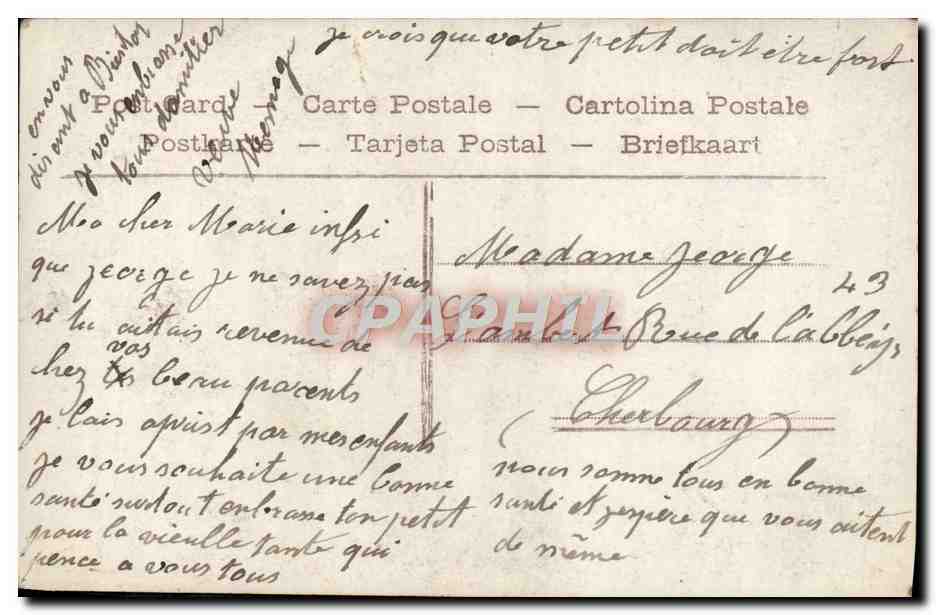 je crois que votre petit doit être fort
Post Card — Carte Postale — Cartolina Postale
Postkarte — Tarjeta Postal — Briefkaart
Ma cher Marie insi
que jeorge je ne savez pas
si tu aitais revenue de
vos
chez beau parents
je lais aprist par mes enfants
je vous souhaite une bonne
santé surtout enbrasse ton petit
pour la vieille tante qui
pence a vous tous
Madame jeorge
43
Lambert Rue de l'abbéye
(Cherbourg)
nous somme tous en bonne
santé et jespère que vous aitent
de même
en vous
disant a Bientot
je vous enbrasse
tous d'amitier
veuve
CPARPHIL